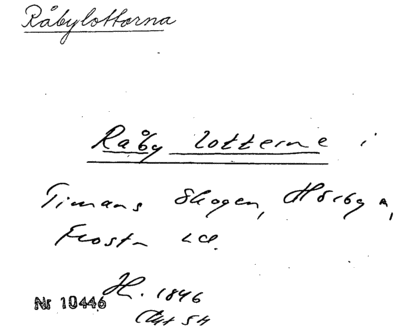 Råbylotterna
Råby lotterne i
Timans Skogen, Hörby s,
Frosta
H. 1846
Nr 10446
54